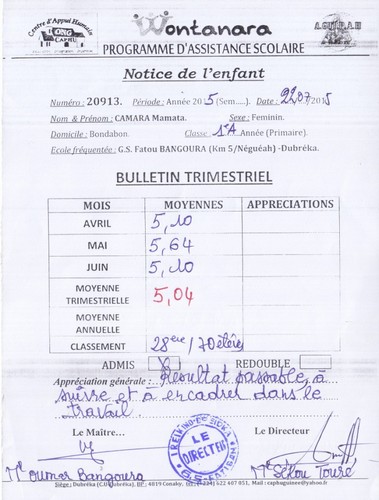 Centre d'Appui Humain
ONG
CAPHU
Wontanara
A.GUI.R.A.H
PROGRAMME D'ASSISTANCE SCOLAIRE
Notice de l'enfant
Numéro : 20913. Période : Année 2015 (Sem.....). Date : 22/07/2015
Nom & Prénom : CAMARA Mamata. Sexe : Feminin.
Domicile : Bondabon. Classe : 1èA Année (Primaire).
Ecole fréquentée : G.S. Fatou BANGOURA (Km 5/Néguéah) -Dubréka.
BULLETIN TRIMESTRIEL
MOIS MOYENNES APPRECIATIONS
AVRIL 5,10
MAI 5,64
JUIN 5,10
MOYENNE TRIMESTRIELLE 5,04
MOYENNE ANNUELLE
CLASSEMENT 28ère / 70 élèves
ADMIS X REDOUBLE
Appréciation générale : Résultat passable, à
suivre et à encadrer dans le
travail
Le Maître... Le Directeur
LE DIRECTEUR
Mr Oumar Bangoura Mr Sékou Touré
Siège : Dubréka (C.U Dubréka), BP : 4819 Conakry,